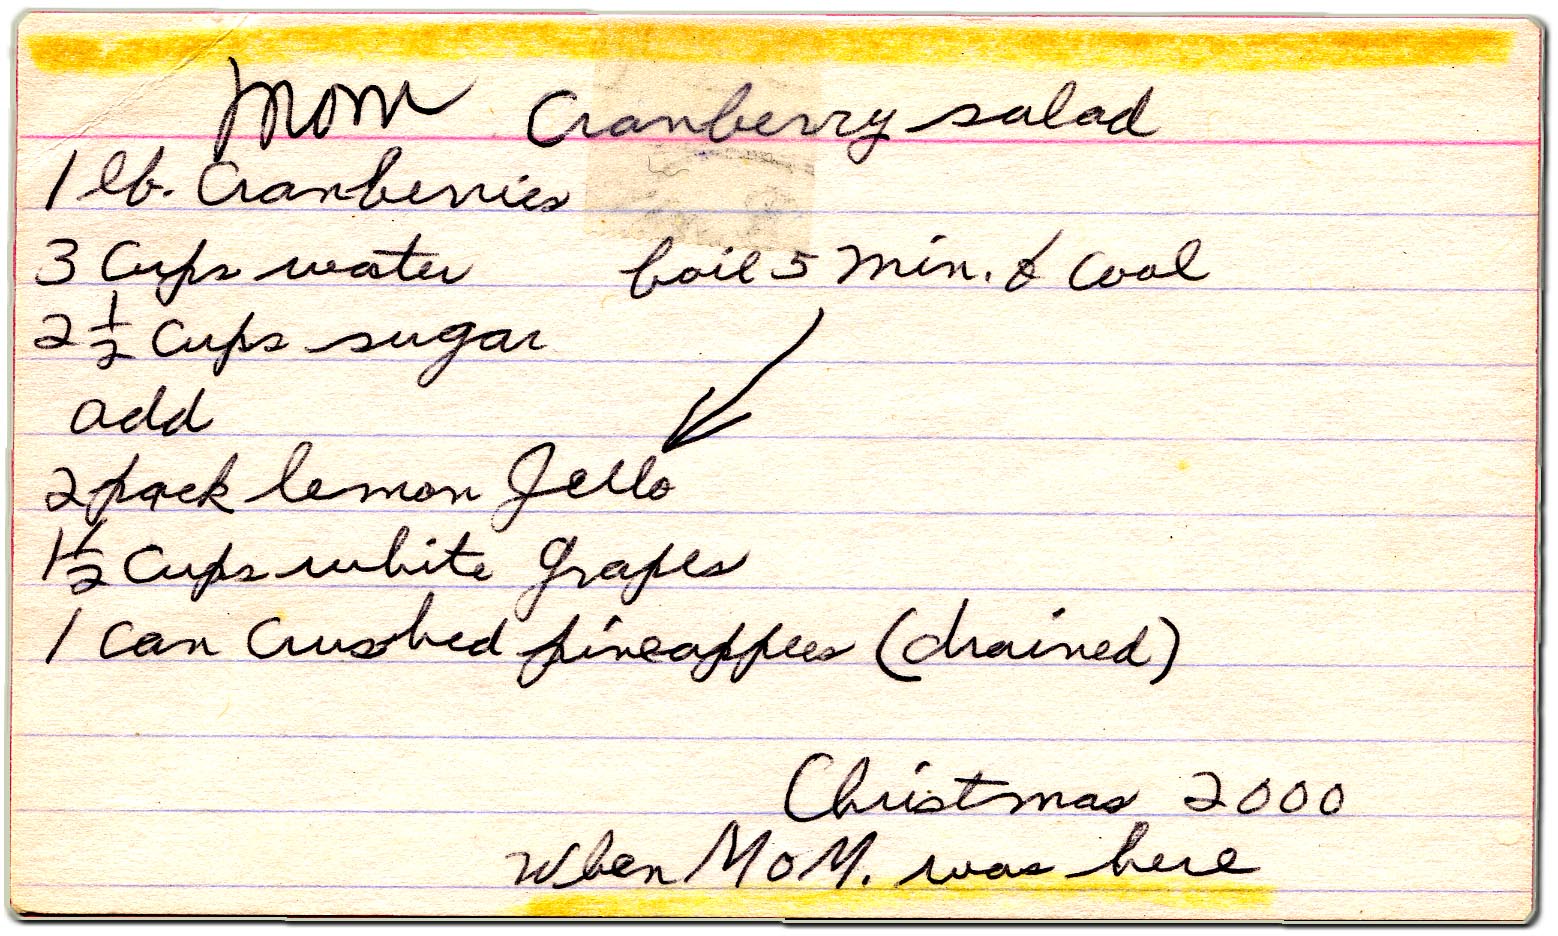 Mom Cranberry salad
1 lb. Cranberries
3 Cups water boil 5 min. & Cool
2 1/2 Cups sugar
add
2 pack lemon Jello
1 1/2 Cups white grapes
1 can crushed pineapples (drained)
Christmas 2000
When MOM. was here